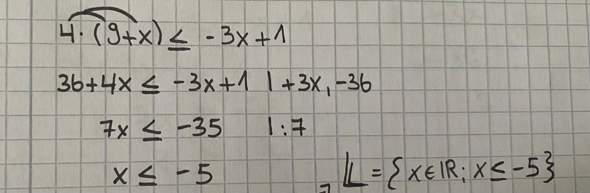 4·(9+x) ≤ -3x+1
36+4x ≤ -3x+1 | +3x, -36
7x ≤ -35 | :7
x ≤ -5
𝕃 = {x∈ℝ; x≤-5}